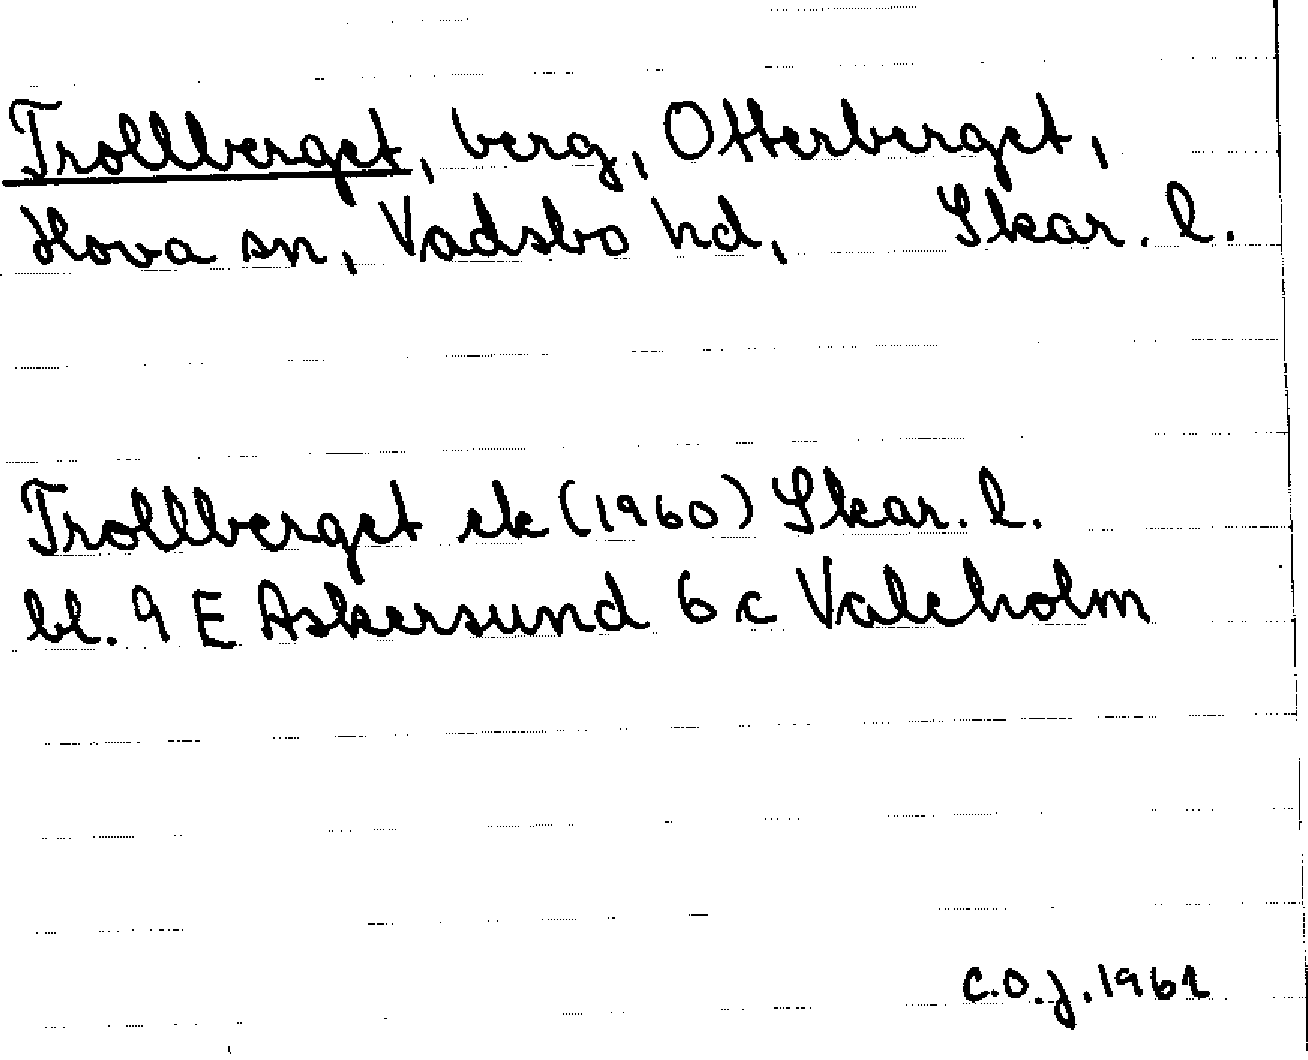 Trollberget, berg, Otterberget,
Hova sn, Vadsbo hd, Skar. l.
Trollberget ek (1960) Skar. l.
bl. 9 E Askersund 6 c Valeholm
C.O.J. 1961